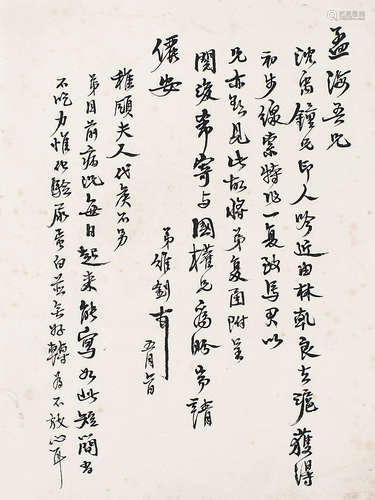 孟海吾兄
沈禹鐘兄印人吟近由林乾良去滬獲得
初步線索特作一复致馬君以
兄亦欲見此故將弟复函附呈
閱後希寄与國權兄為盼耑請
儷安
弟維釗
五月
稚頤夫人代候不另
弟目前病況每日起來能寫如此短簡尚
不吃力惟化驗尿蛋白並無好轉為不放心耳